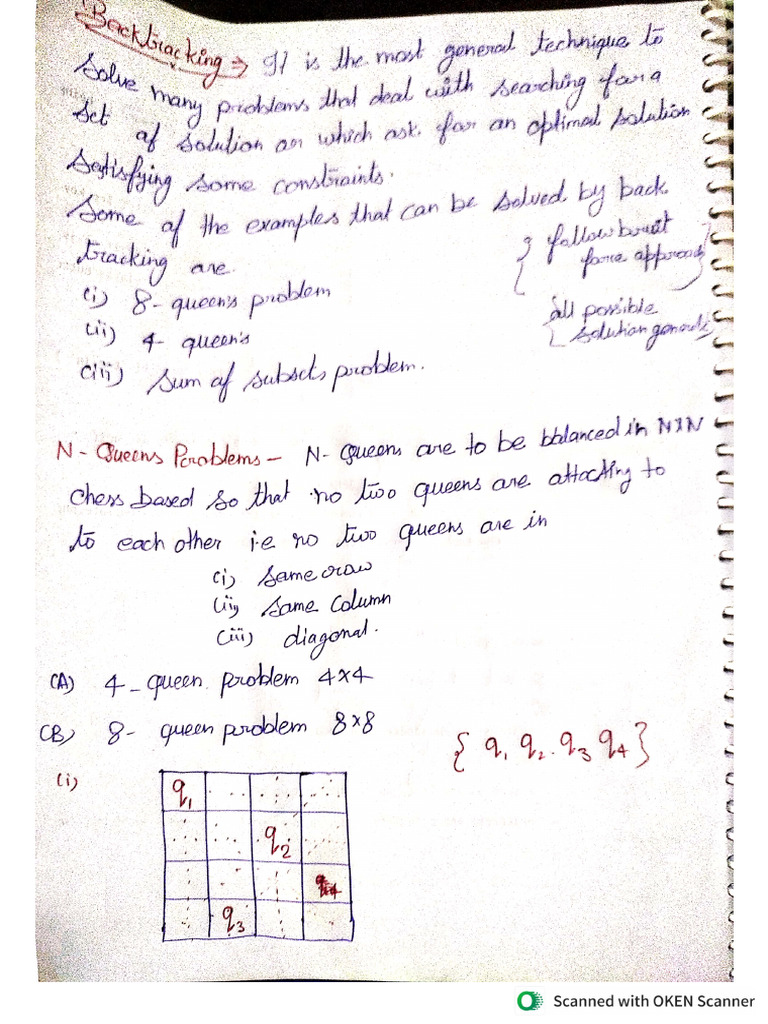 Backtracking ⇒ It is the most general technique to
solve many problems that deal with searching for a
set of solution or which ask for an optimal solution
satisfying some constraints.
Some of the examples that can be solved by back
tracking are
follow bruit
force approach
(i) 8-queen's problem
(ii) 4-queen's
all possible
solution generate
(iii) Sum of subsets problem.
N-Queens Problems - N-Queens are to be bblanced in NXN
chess based so that no two queens are attacting to
to each other i.e no two queens are in
(i) same row
(ii) same column
(iii) diagonal.
(A) 4-queen problem 4x4
(B) 8-queen problem 8x8
{ q1 q2. q3 q4 }
(i)
q1
q2
q3
Scanned with OKEN Scanner